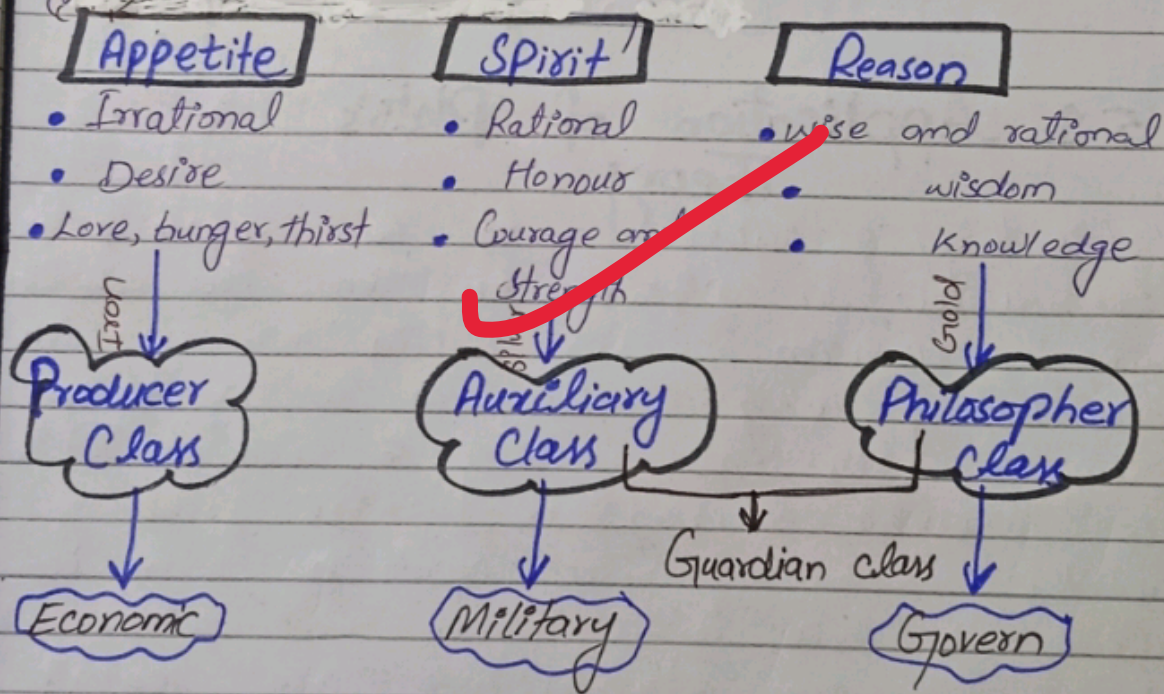 Appetite
Irrational
Desire
Love, bunger, thirst
Iron
Producer
Class
Economic
Spirit
Rational
Honour
Courage and
Strength
Auxiliary
Class
Military
Reason
wise and rational
wisdom
Knowledge
Gold
Philosopher
Class
Guardian class
Govern